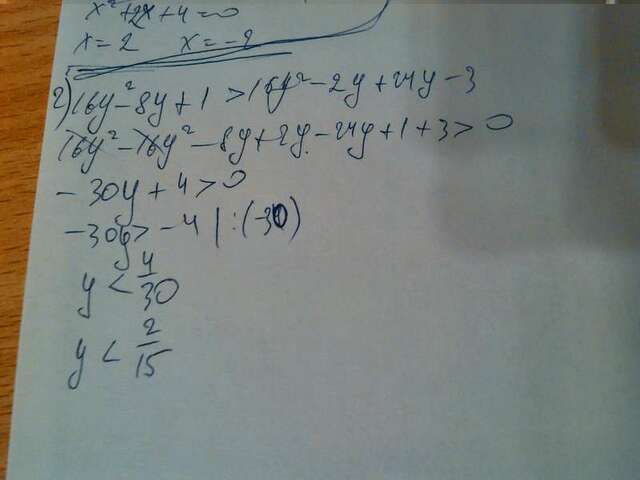 x² + 2x + 4 = 0
x = 2 x = -2
2) 16y² - 8y + 1 > 16y² - 2y + 24y - 3
16y² - 16y² - 8y + 2y - 24y + 1 + 3 > 0
- 30y + 4 > 0
- 30y > - 4 | : (-30)
y < 4/30
y < 2/15